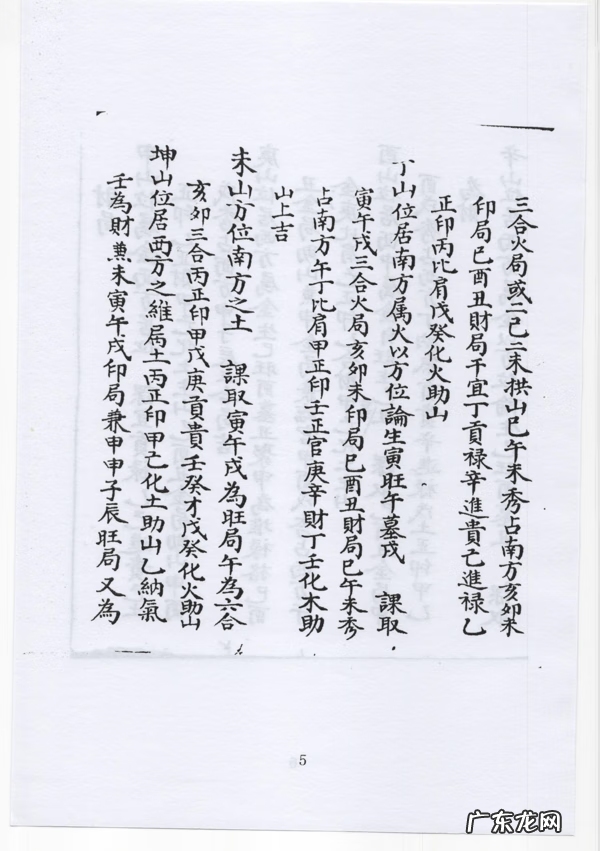 三合火局或二己二未拱山巳午未秀占南方亥卯未
印局巳酉丑財局干宜丁貢禄辛進貴己進禄乙
正印丙比肩戊癸化火助山
丁山位居南方属火以方位論生寅旺午墓戌 課取
寅午戌三合火局亥卯未印局巳酉丑財局巳午未秀
占南方午丁比肩甲正印壬正官庚辛財丁壬化木助
山上吉
未山方位南方之土 課取寅午戌為旺局午為六合
亥卯三合丙正印甲戊庚貢貴壬癸才戊癸化火助山
坤山位居西方之維属土丙正印甲己化土助山乙納氣
壬為財兼未寅午戌印局兼申申子辰旺局又為
5
广东龙网